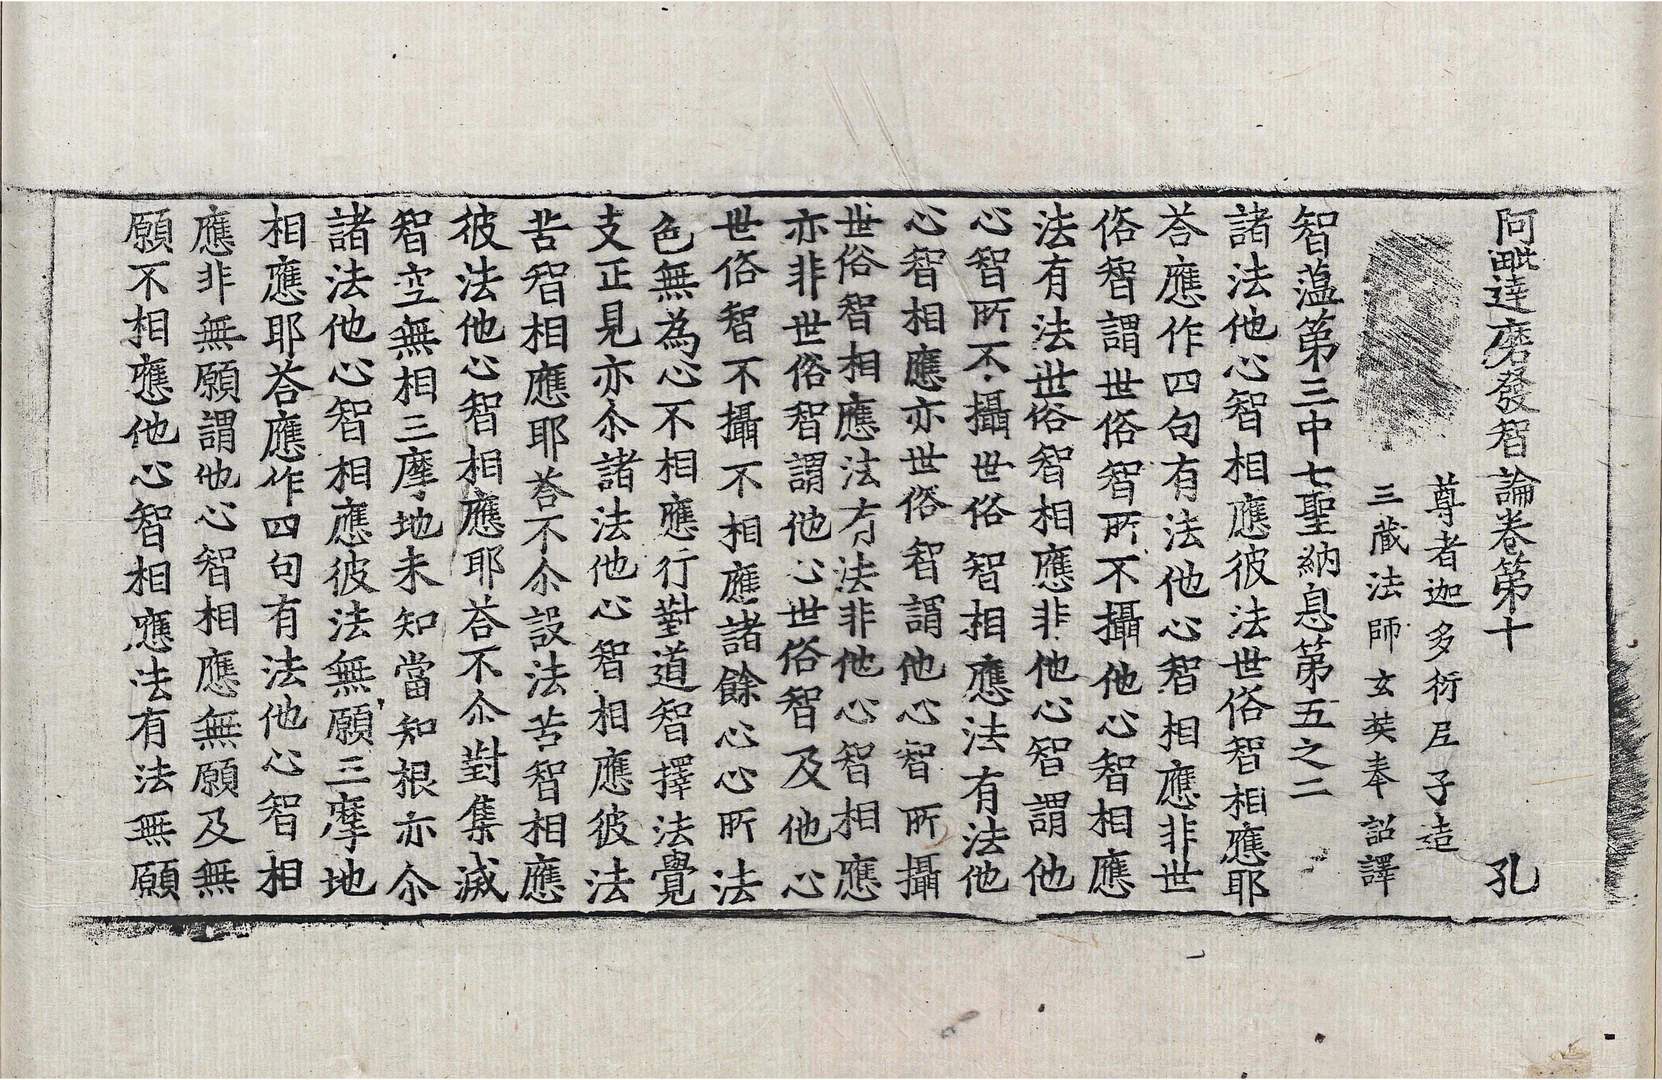 阿毗達磨發智論卷第十　孔
尊者迦多衍尼子造
三藏法師玄奘奉詔譯
智蘊第三中七聖納息第五之二
諸法他心智相應彼法世俗智相應耶
荅應作四句有法他心智相應非世
俗智謂世俗智所不攝他心智相應
法有法世俗智相應非他心智謂他
心智所不攝世俗智相應法有法他
心智相應亦世俗智謂他心智所攝
世俗智相應法有法非他心智相應
亦非世俗智謂他心世俗智及他心
世俗智不攝不相應諸餘心心所法
色無為心不相應行對道智擇法覺
支正見亦尒諸法他心智相應彼法
苦智相應耶荅不尒設法苦智相應
彼法他心智相應耶荅不尒對集滅
智空無相三摩地未知當知根亦尒
諸法他心智相應彼法無願三摩地
相應耶荅應作四句有法他心智相
應非無願謂他心智相應無願及無
願不相應他心智相應法有法無願